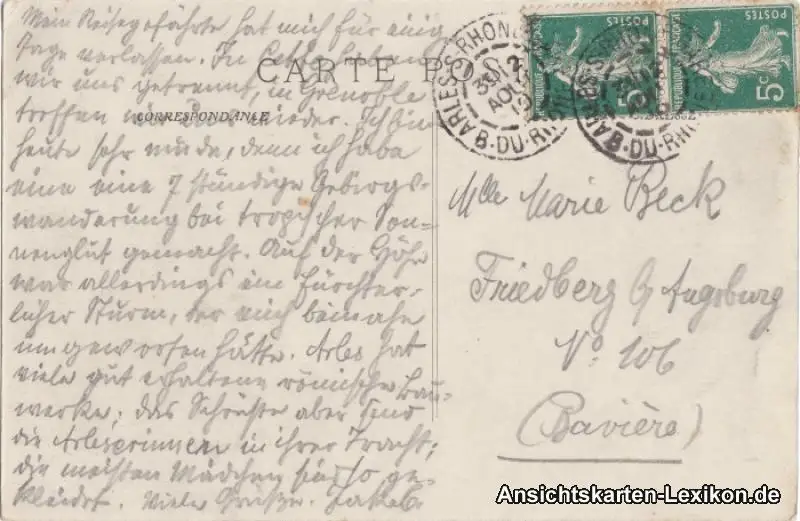 Mein Reisegefährte hat mich für einige
Tage verlassen. In Cette haben
wir uns getrennt, in Grenoble
treffen wir uns wieder. Ich bin
heute sehr müde, denn ich habe
eine eine 7 stündige Gebirgs-
wanderung bei tropischer Son-
nenglut gemacht. Auf der Höhe
war allerdings ein fürchter-
licher Sturm, der mich beinahe
umgeworfen hätte. Arles hat
viele gut erhaltene römische Bau-
werke; das Schönste aber sind
die Arlesierinnen in ihrer Tracht;
die meisten Mädchen sind so ge-
kleidet. Viele Grüße. Jakob.
CARTE POSTALE
CORRESPONDANCE
ARLES-S-RHONE
AOUT
B-DU-RHONE
POSTES
REPUBLIQUE FRANÇAISE
5c
POSTES
5c
Mlle Marie Beck
Friedberg b/ Augsburg
No 106
(Bavière)
Ansichtskarten-Lexikon.de